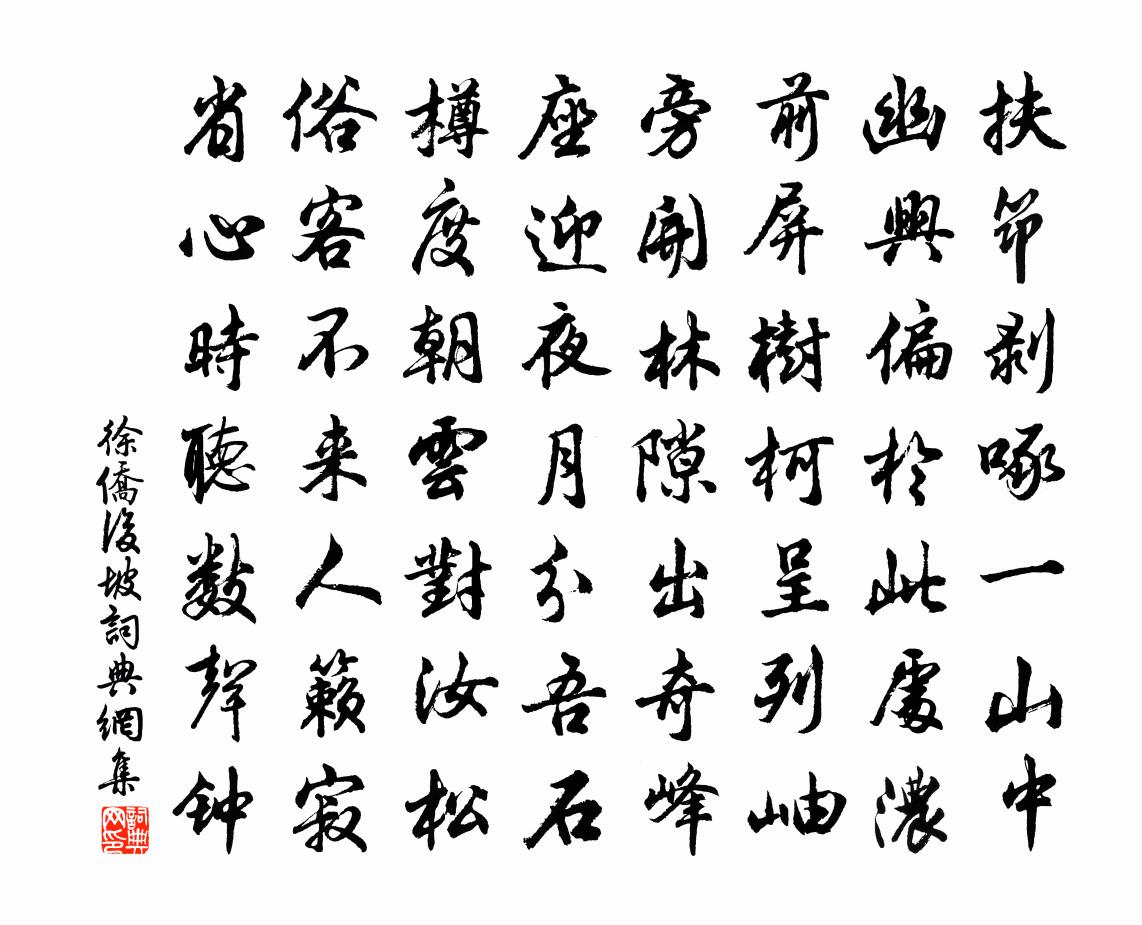 扶筇剥啄一山中
幽興偏於此處濃
前屏樹柯呈列岫
旁開林隙出奇峰
座迎夜月分吾石
樽度朝雲對汝松
俗客不来人籟寂
省心時聽數聲钟
徐僑後坡詞典網集
詞典网印